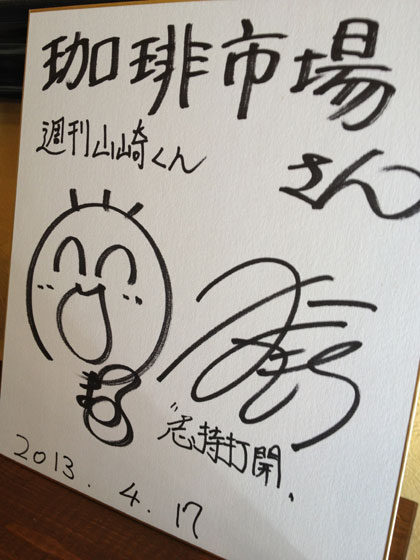 珈琲市場
さん
週刊山崎くん
持打開、
2013.4.17